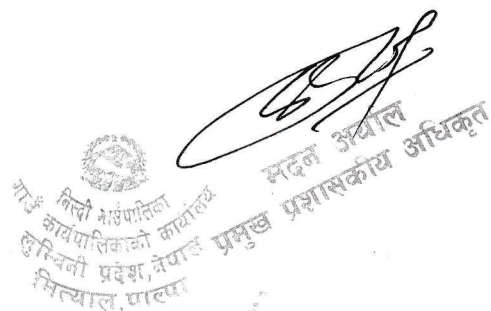 मदन अर्याल
प्रमुख प्रशासकीय अधिकृत
गाउँ कार्यपालिकाको कार्यालय
लुम्बिनी प्रदेश, नेपाल
मित्याल, पाल्पा